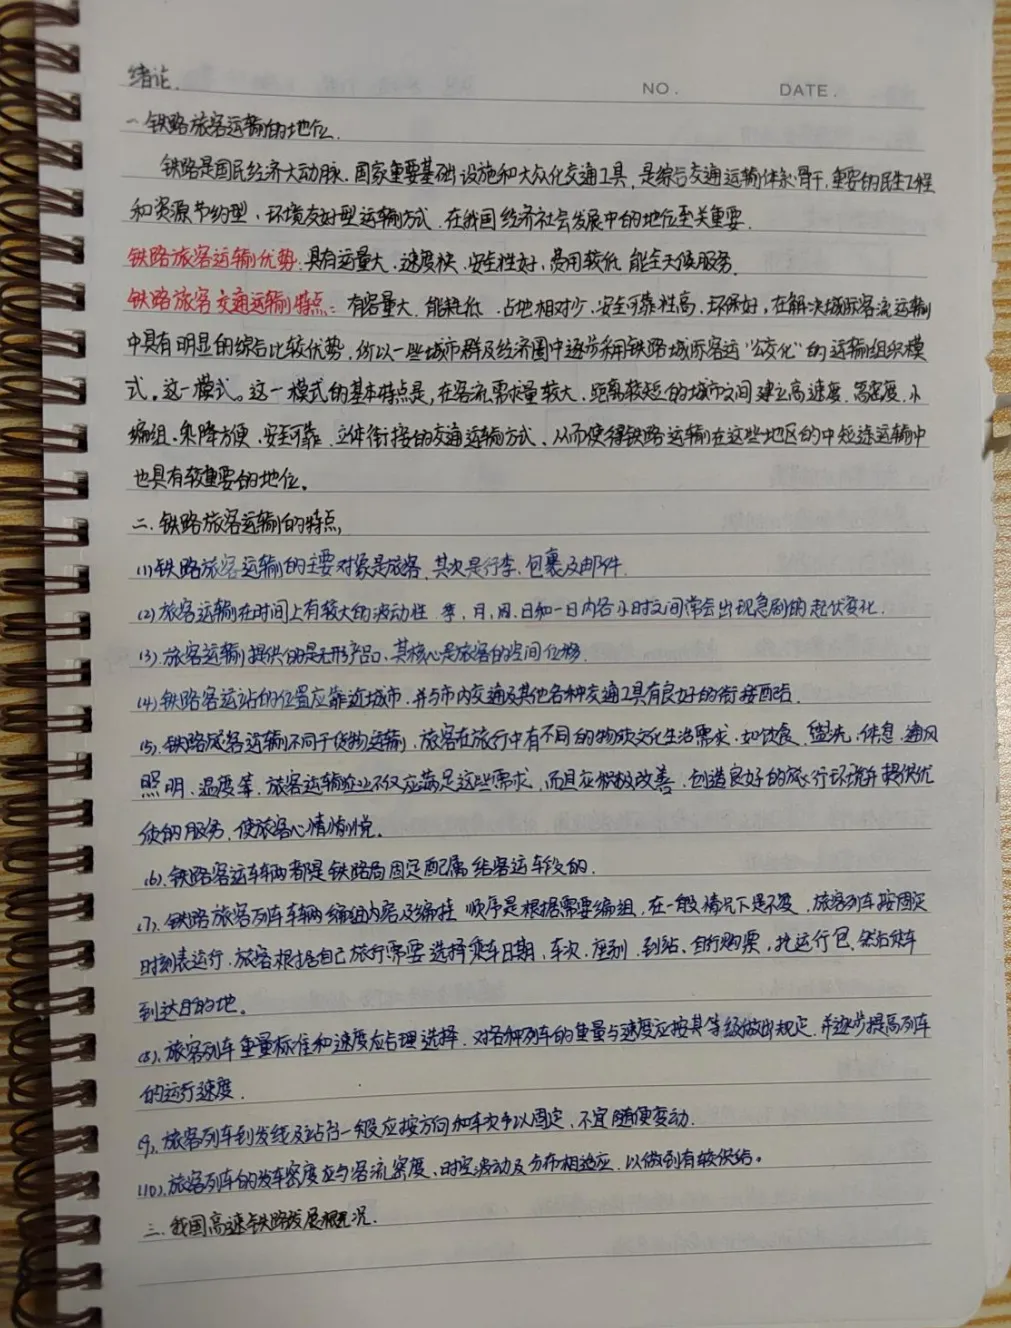 绪论.
NO. DATE.
一、铁路旅客运输的地位.
铁路是国民经济大动脉、国家重要基础设施和大众化交通工具，是综合交通运输体系骨干，重要的民生工程
和资源节约型、环境友好型运输方式，在我国经济社会发展中的地位至关重要.
铁路旅客运输优势：具有运量大、速度快、安全性好、费用较低 能全天候服务.
铁路旅客交通运输特点：有容量大、能耗低、占地相对少、安全可靠性高、环保好，在解决城际客流运输
中具有明显的综合比较优势，所以一些城市群及经济圈中逐步利用铁路城际客运"公交化"的运输组织模
式。这一模式。这一模式的基本特点是，在客流需求量较大、距离较短的城市之间建立高速度、高密度、小
编组、乘降方便、安全可靠、立体衔接的交通运输方式，从而使得铁路运输在这些地区的中短途运输中
也具有较重要的地位。
二、铁路旅客运输的特点
(1)铁路旅客运输的主要对象是旅客，其次是行李、包裹及邮件.
(2)旅客运输在时间上有较大的波动性 季、月、周、日和一日内各小时之间常会出现急剧的起伏变化.
(3).旅客运输提供的是无形产品，其核心是旅客的空间位移.
(4)铁路客运站的位置应靠近城市，并与市内交通及其他各种交通工具有良好的衔接配合.
(5).铁路旅客运输不同于货物运输，旅客在旅行中有不同的物质文化生活需求，如饮食、盥洗、休息、通风
照明、温度等，旅客运输企业不仅应满足这些需求，而且应积极改善、创造良好的旅行环境并提供优
质的服务，使旅客心情愉悦。
(6).铁路客运车辆都是铁路局固定配属给客运车段的.
(7).铁路旅客列车车辆编组内容及编挂 顺序是根据需要编组，在一般情况下是不变，旅客列车按固定
时刻表运行，旅客根据自己旅行需要选择乘车日期、车次、座别、到站、自行购票，托运行包，然后乘车
到达目的地。
(8).旅客列车重量标准和速度应合理选择，对各种列车的重量与速度应按其等级做出规定，并逐步提高列车
的运行速度.
(9).旅客列车到发线及站台一般应按方向和车次予以固定，不宜随便变动.
(10).旅客列车的发车密度应与客流密度、时空波动及分布相适应，以做到有较供给。
三、我国高速铁路发展概况.